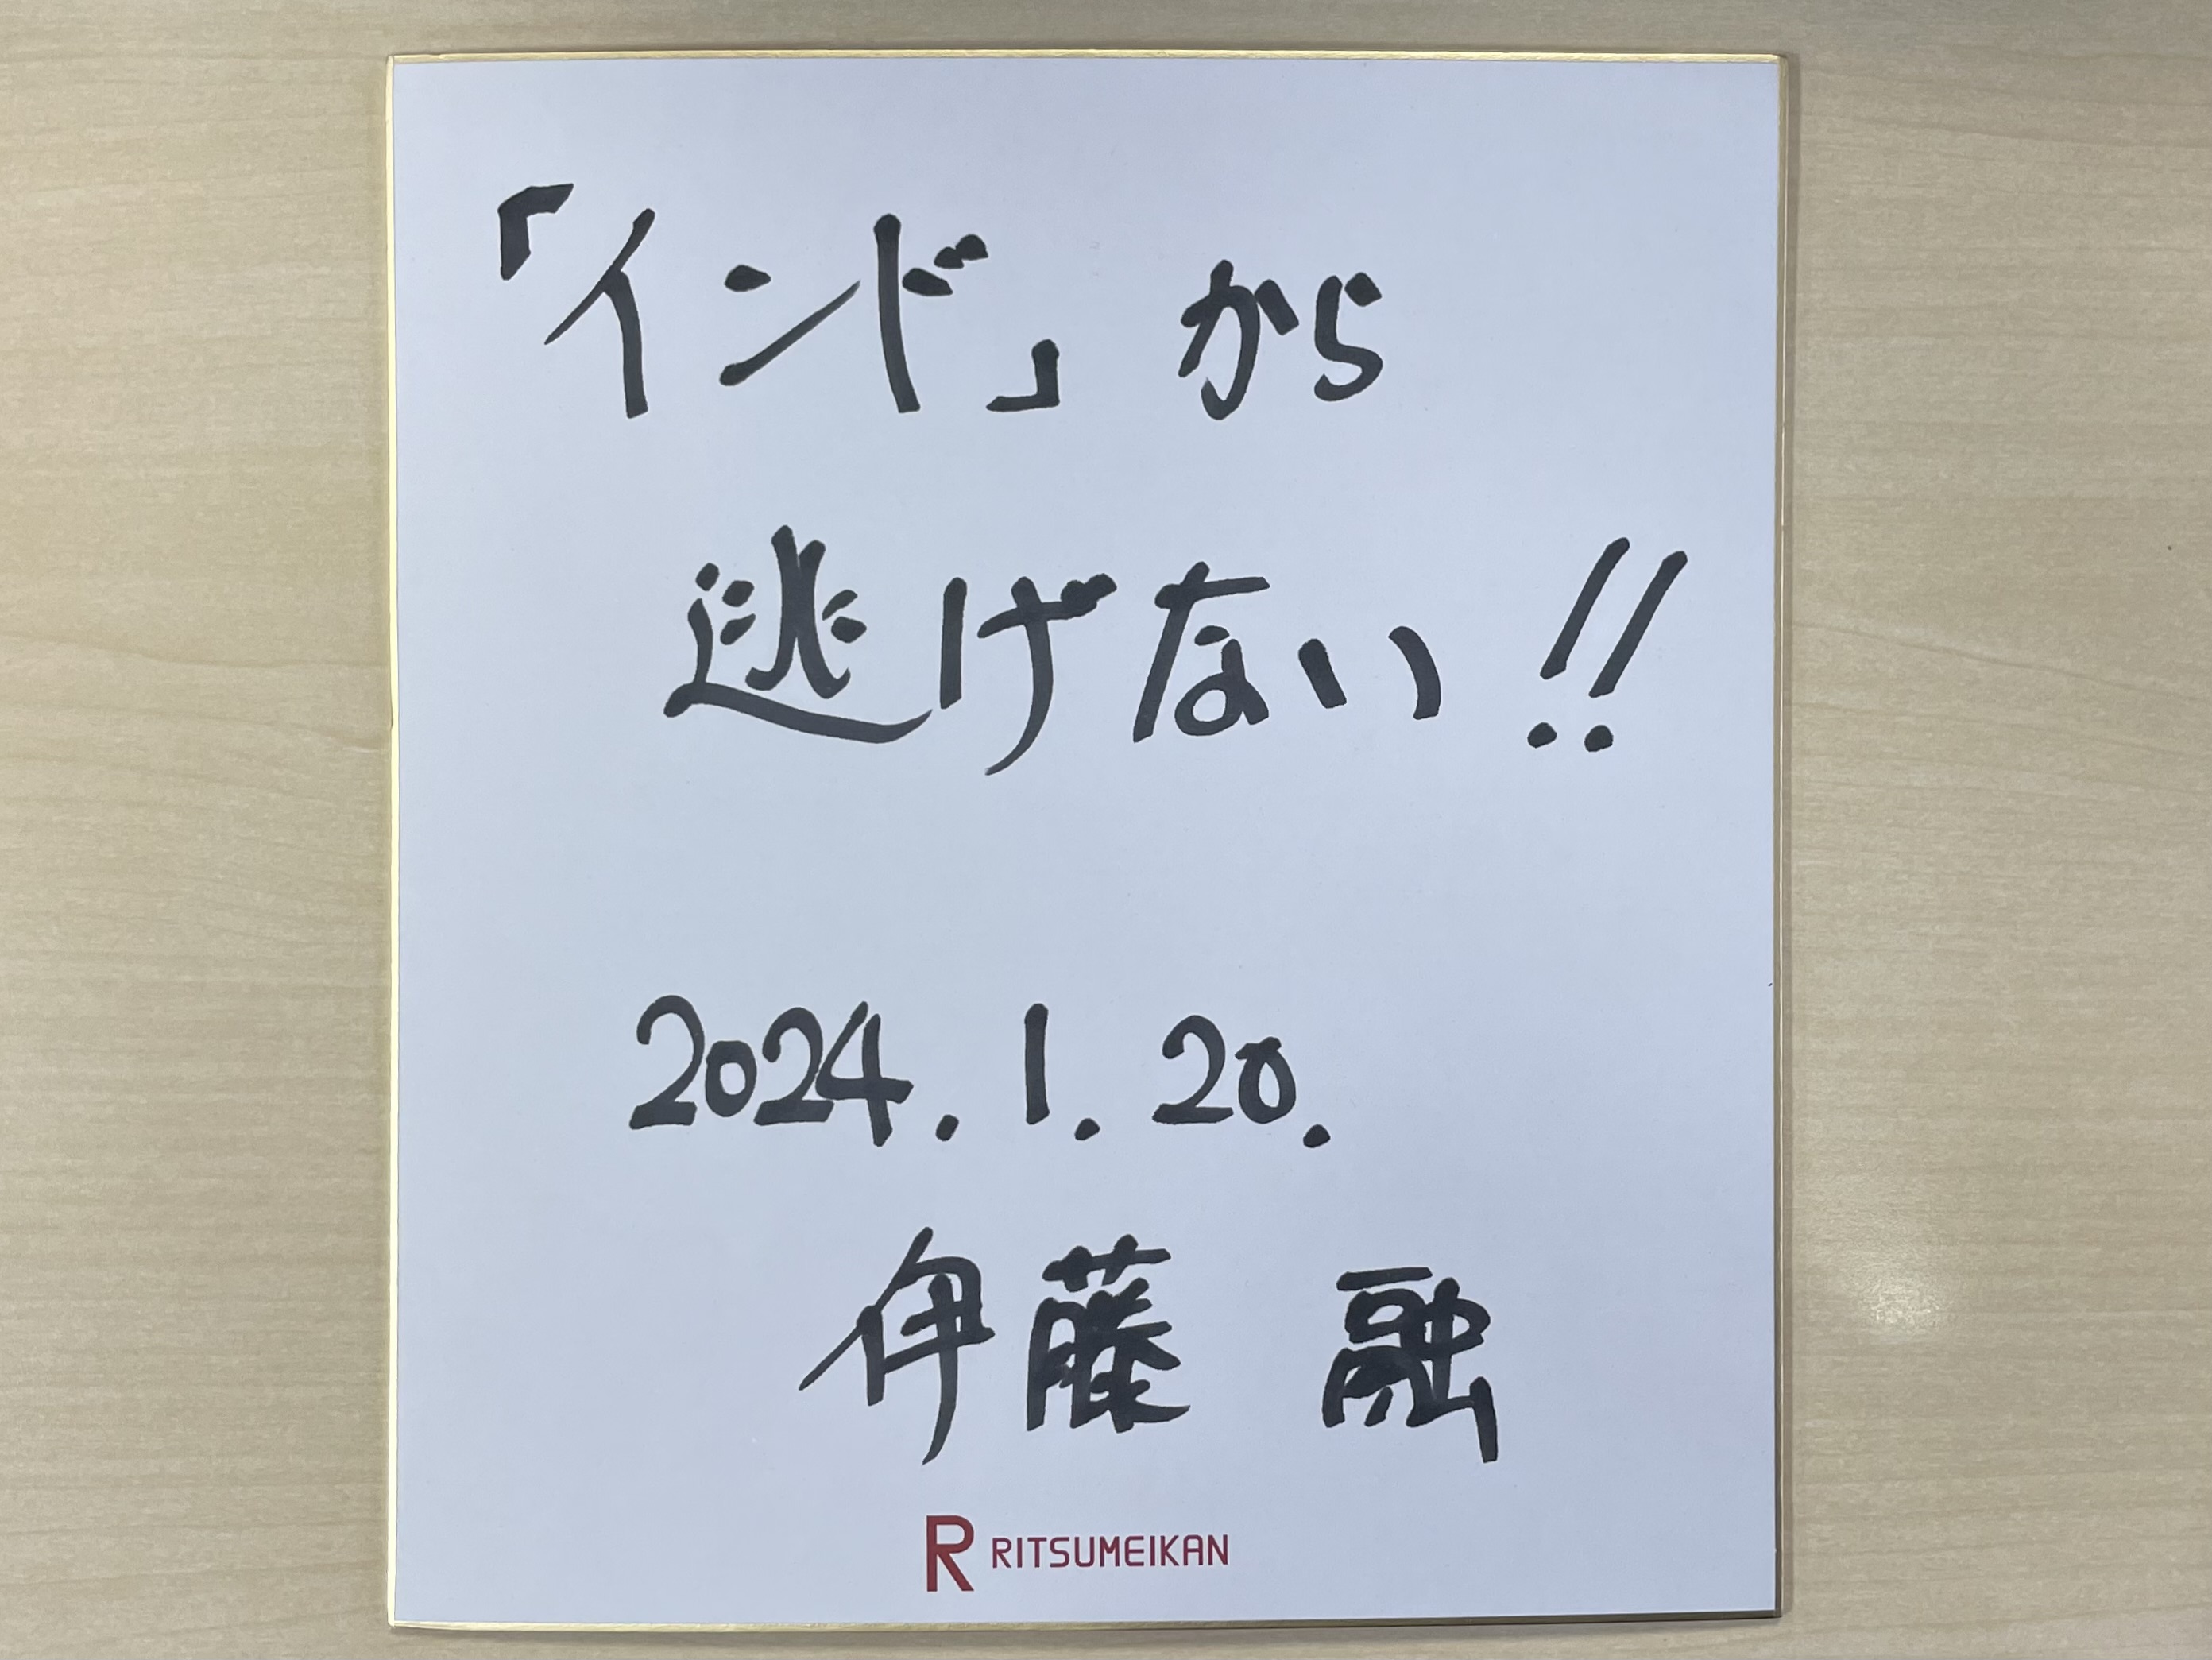 「インド」から
逃げない!!
2024.1.20.
伊藤 融
R RITSUMEIKAN